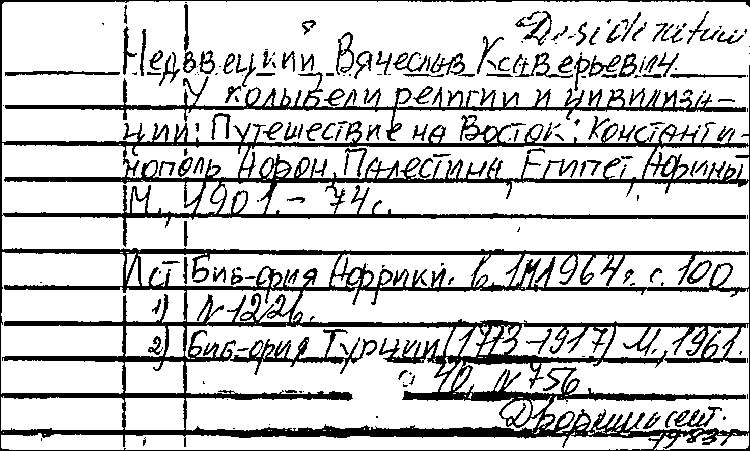 Desideratum
Недзвецкий, Вячеслав Ксаверьевич
У колыбели религии и цивилиза-
ции: Путешествие на Восток: Константи-
нополь, Афон, Палестина, Египет, Афины
М., 1901. - 74 с.
Ист Биб-фия Африки. в. 1 М 1964 г., с. 100,
1) N 1226.
2) Биб-фия Турции (1713-1917) М., 1961.
с 40, N 756.
сент.
1983 г